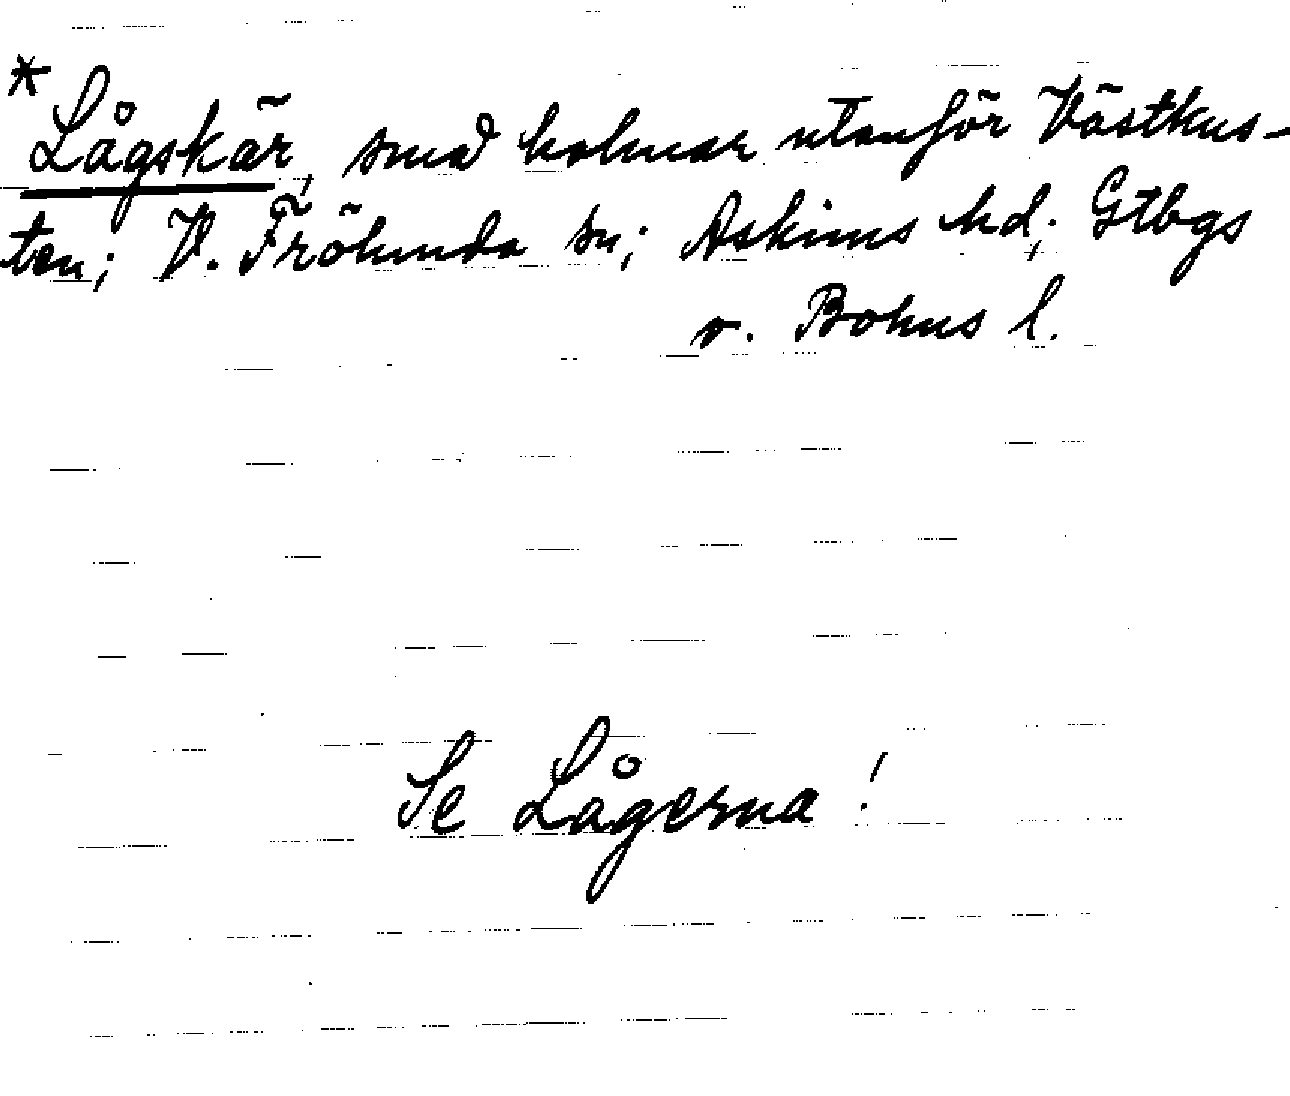 * Lågskär, små holmar utanför Västkus-
ten; V. Frölunda sn; Askims hd; Gtbgs
o. Bohus l.
Se Lågerna!